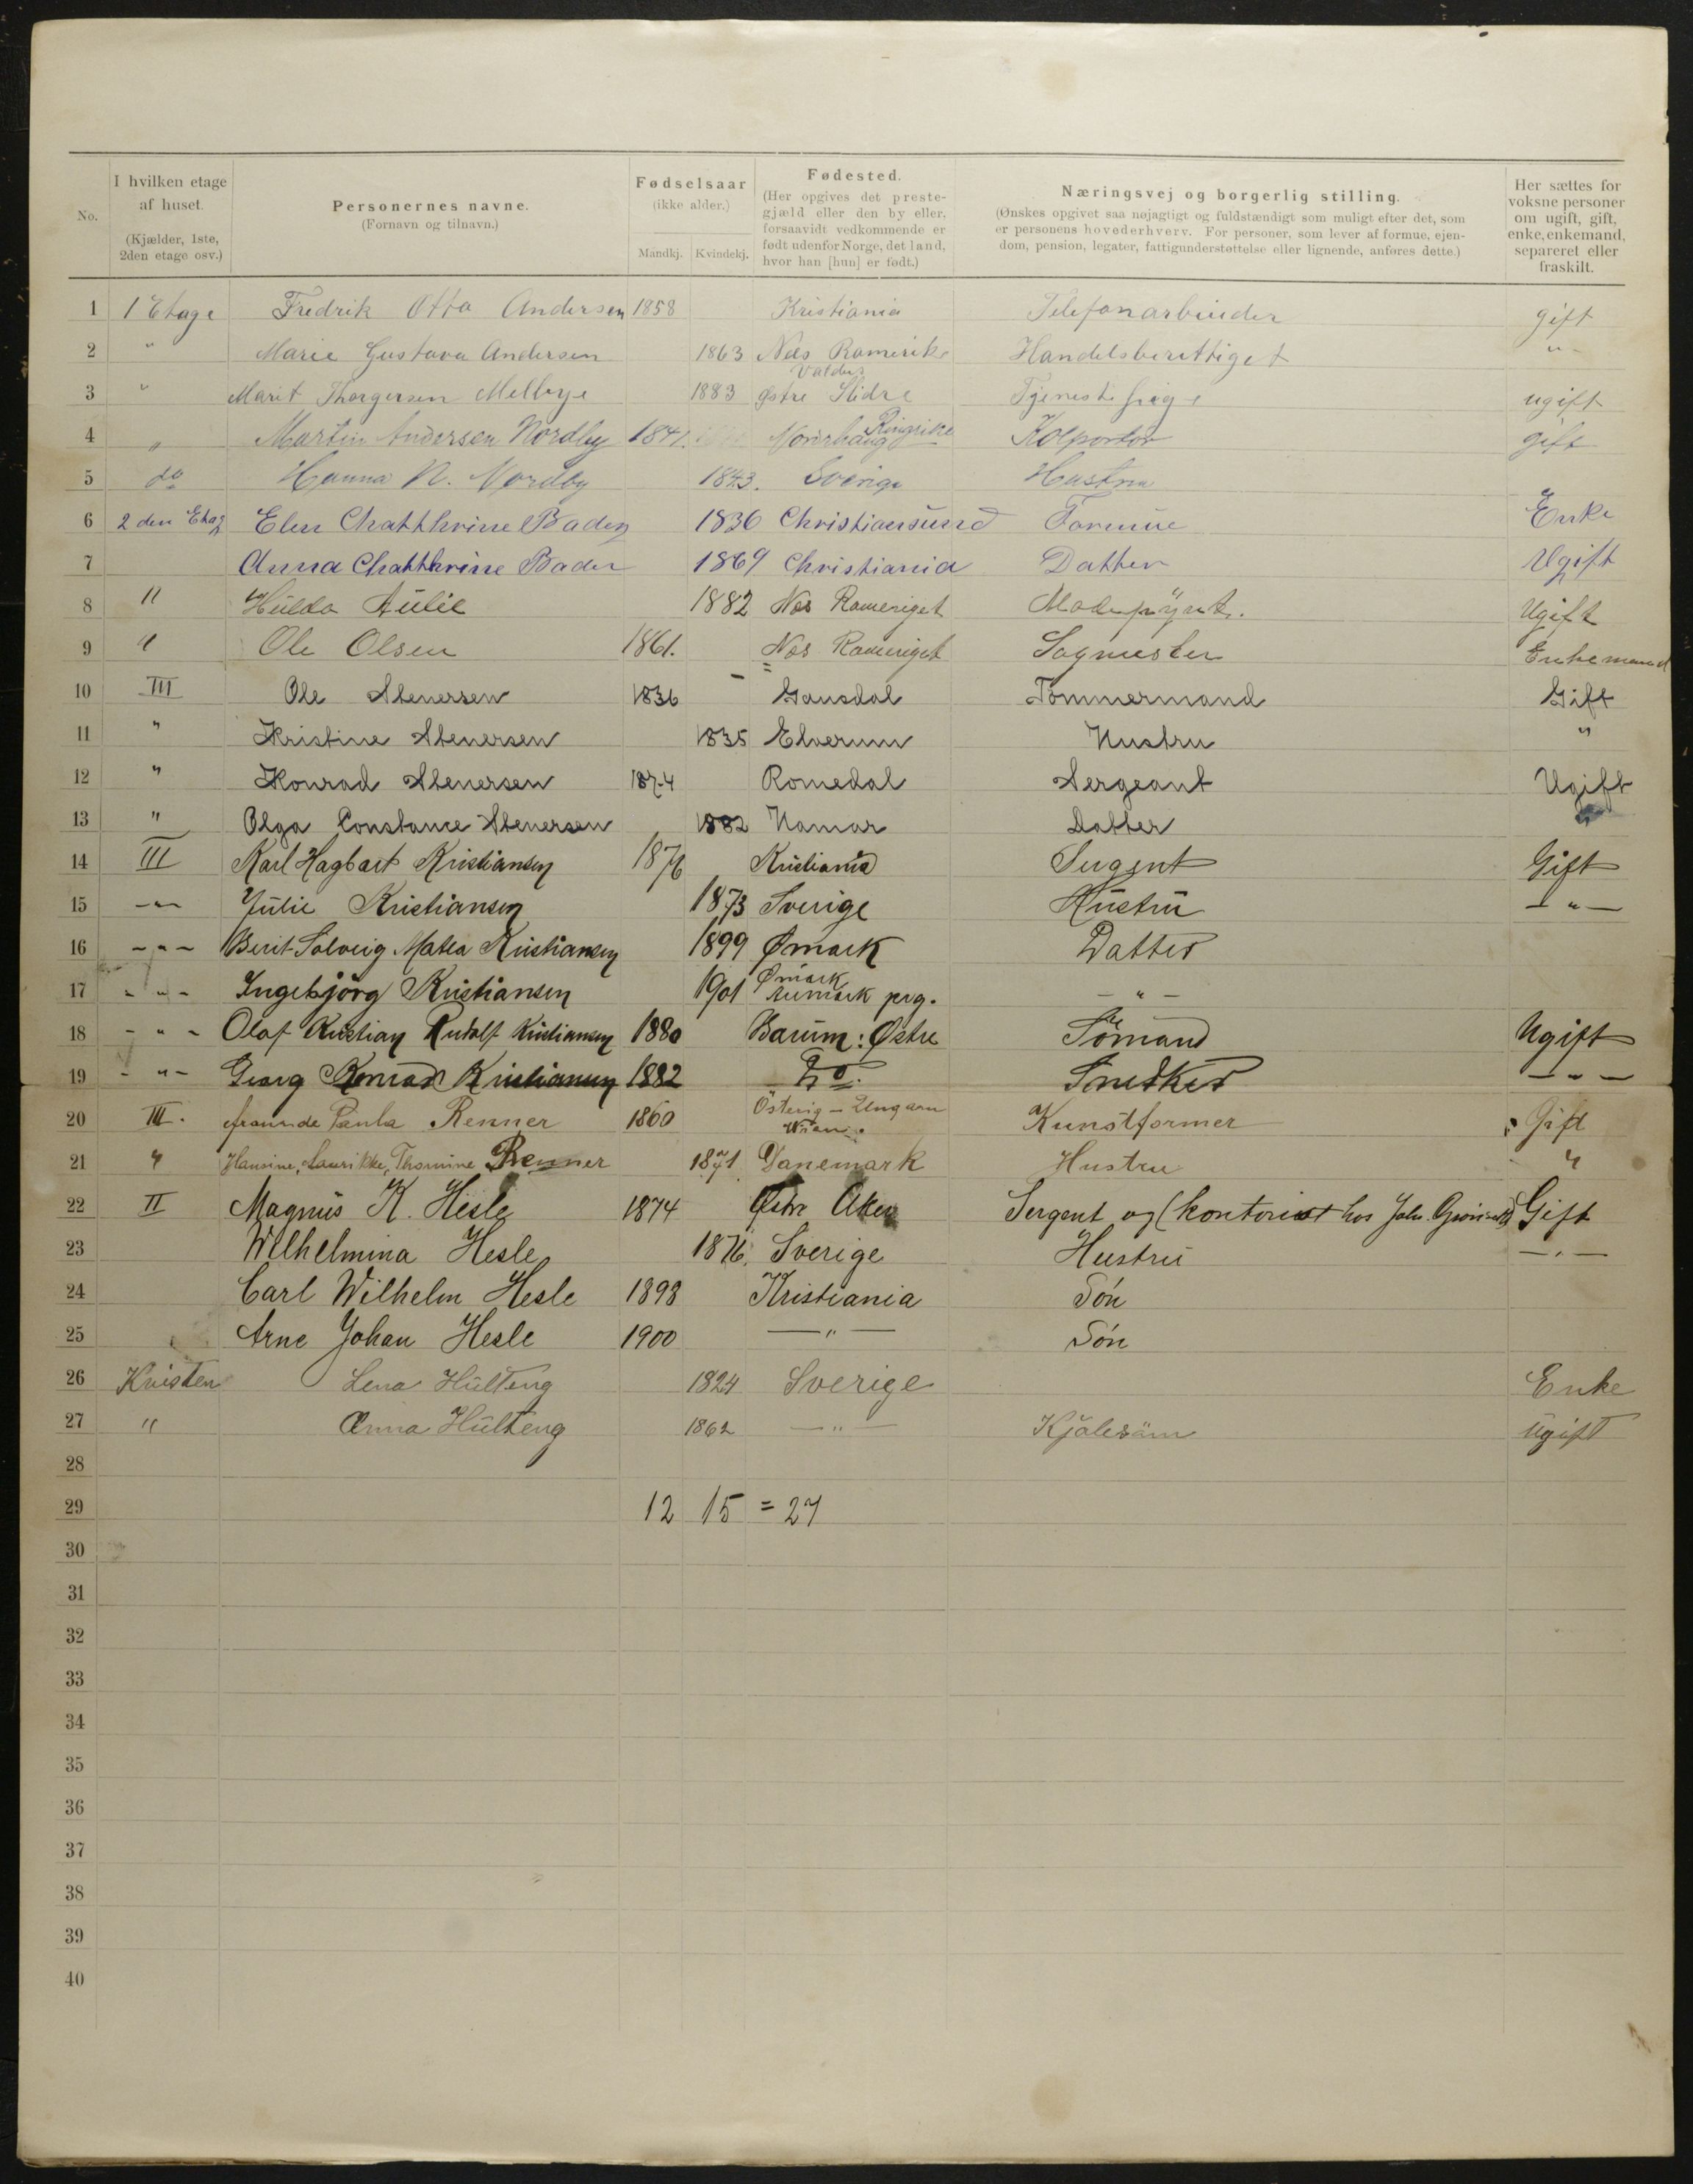 No. I hvilken etage af huset. (Kjælder, 1ste, 2den etage osv.) Personernes navne. (Fornavn og tilnavn.) Fødselsaar (ikke alder.) Mandkj. Kvindekj. Fødested. (Her opgives det prestegjæld eller den by eller, forsaavidt vedkommende er født udenfor Norge, det land, hvor han [hun] er født.) Næringsvej og borgerlig stilling. (Ønskes opgivet saa nøjagtigt og fuldstændigt som muligt efter det, som er personens hovederhverv. For personer, som lever af formue, ejendom, pension, legater, fattigunderstøttelse eller lignende, anføres dette.) Her sættes for voksne personer om ugift, gift, enke, enkemand, separeret eller fraskilt.
1 1 Etage Fredrik Otto Andersen 1858 Kristiania Telefonarbeider gift
2 " Marie Gustava Andersen 1863 Næs Romerike Handelsberettiget "
3 " Marit Thorgersen Melbye 1883 Valders Østre Slidre Tjenestepige ugift
4 " Martin Andersen Nordby 1841. Norderhaug Ringrike Kolportør gift
5 do Hanna N. Nordby 1843. Sverige Hustru
6 2 den Etag Elen Chatthrine Baden 1836 Christiansund Formue Enke
7 Anna Chatthrine Baden 1869 Christiania Datter Ugift
8 " Hulda Aulie 1882 Nes Romeriget Modepynt. Ugift
9 " Ole Olsen 1861. Nes Romeriget Sagmester Enkemand
10 III Ole Stenersen 1836 Gausdal Tömmermand Gift
11 " Kristine Stenersen 1835 Elverum Hustru "
12 " Konrad Stenersen 1874 Romedal Sergeant Ugift
13 " Olga Constance Stenersen 1882 Hamar Datter
14 III Karl Hagbart Kristiansen 1876 Kristiania Sergent Gift
15 -"- Julie Kristiansen 1873 Sverige Hustru -"-
16 -"- Berit Solveig Matea Kristiansen 1899 Ømark Datter
17 -"- Ingebjörg Kristiansen 1901 Ømark Aremark prg. -"-
18 -"- Olaf Kristian Rudolf Kristiansen 1880 Bærum: Østre Sömand Ugift
19 -"- Georg Konrad Kristiansen 1882 Do. Snedker -"-
20 III. Paula Renner 1860 Österig - Ungarn Wien. Kunstformer Gift
21 " Hansine, Laurikke, Thomine Renner 1871 Danemark Hustru "
22 II Magnus K. Hesle 1874 Østre Aker Sergent og (kontorist hos Joh. Gift
23 Wilhelmina Hesle 1876. Sverige Hustru -"-
24 Carl Wilhelm Hesle 1898 Kristiania Søn
25 Arne Johan Hesle 1900 -"- Søn
26 Kvisten Lena Hülteng 1824 Sverige Enke
27 " Anna Hülteng 1862 -"- Kjolesöm ugift
28
29 12 15 = 27
30
31
32
33
34
35
36
37
38
39
40